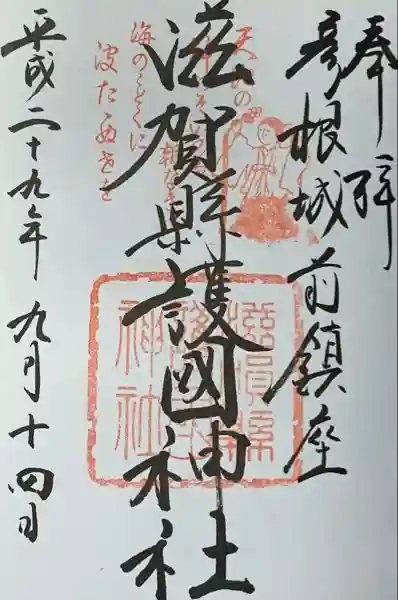 奉拝
彦根城前鎮座
滋賀縣護國神社
平成二十九年九月十四日
滋賀縣
護國
神社
海のことくに
波たゝぬまを